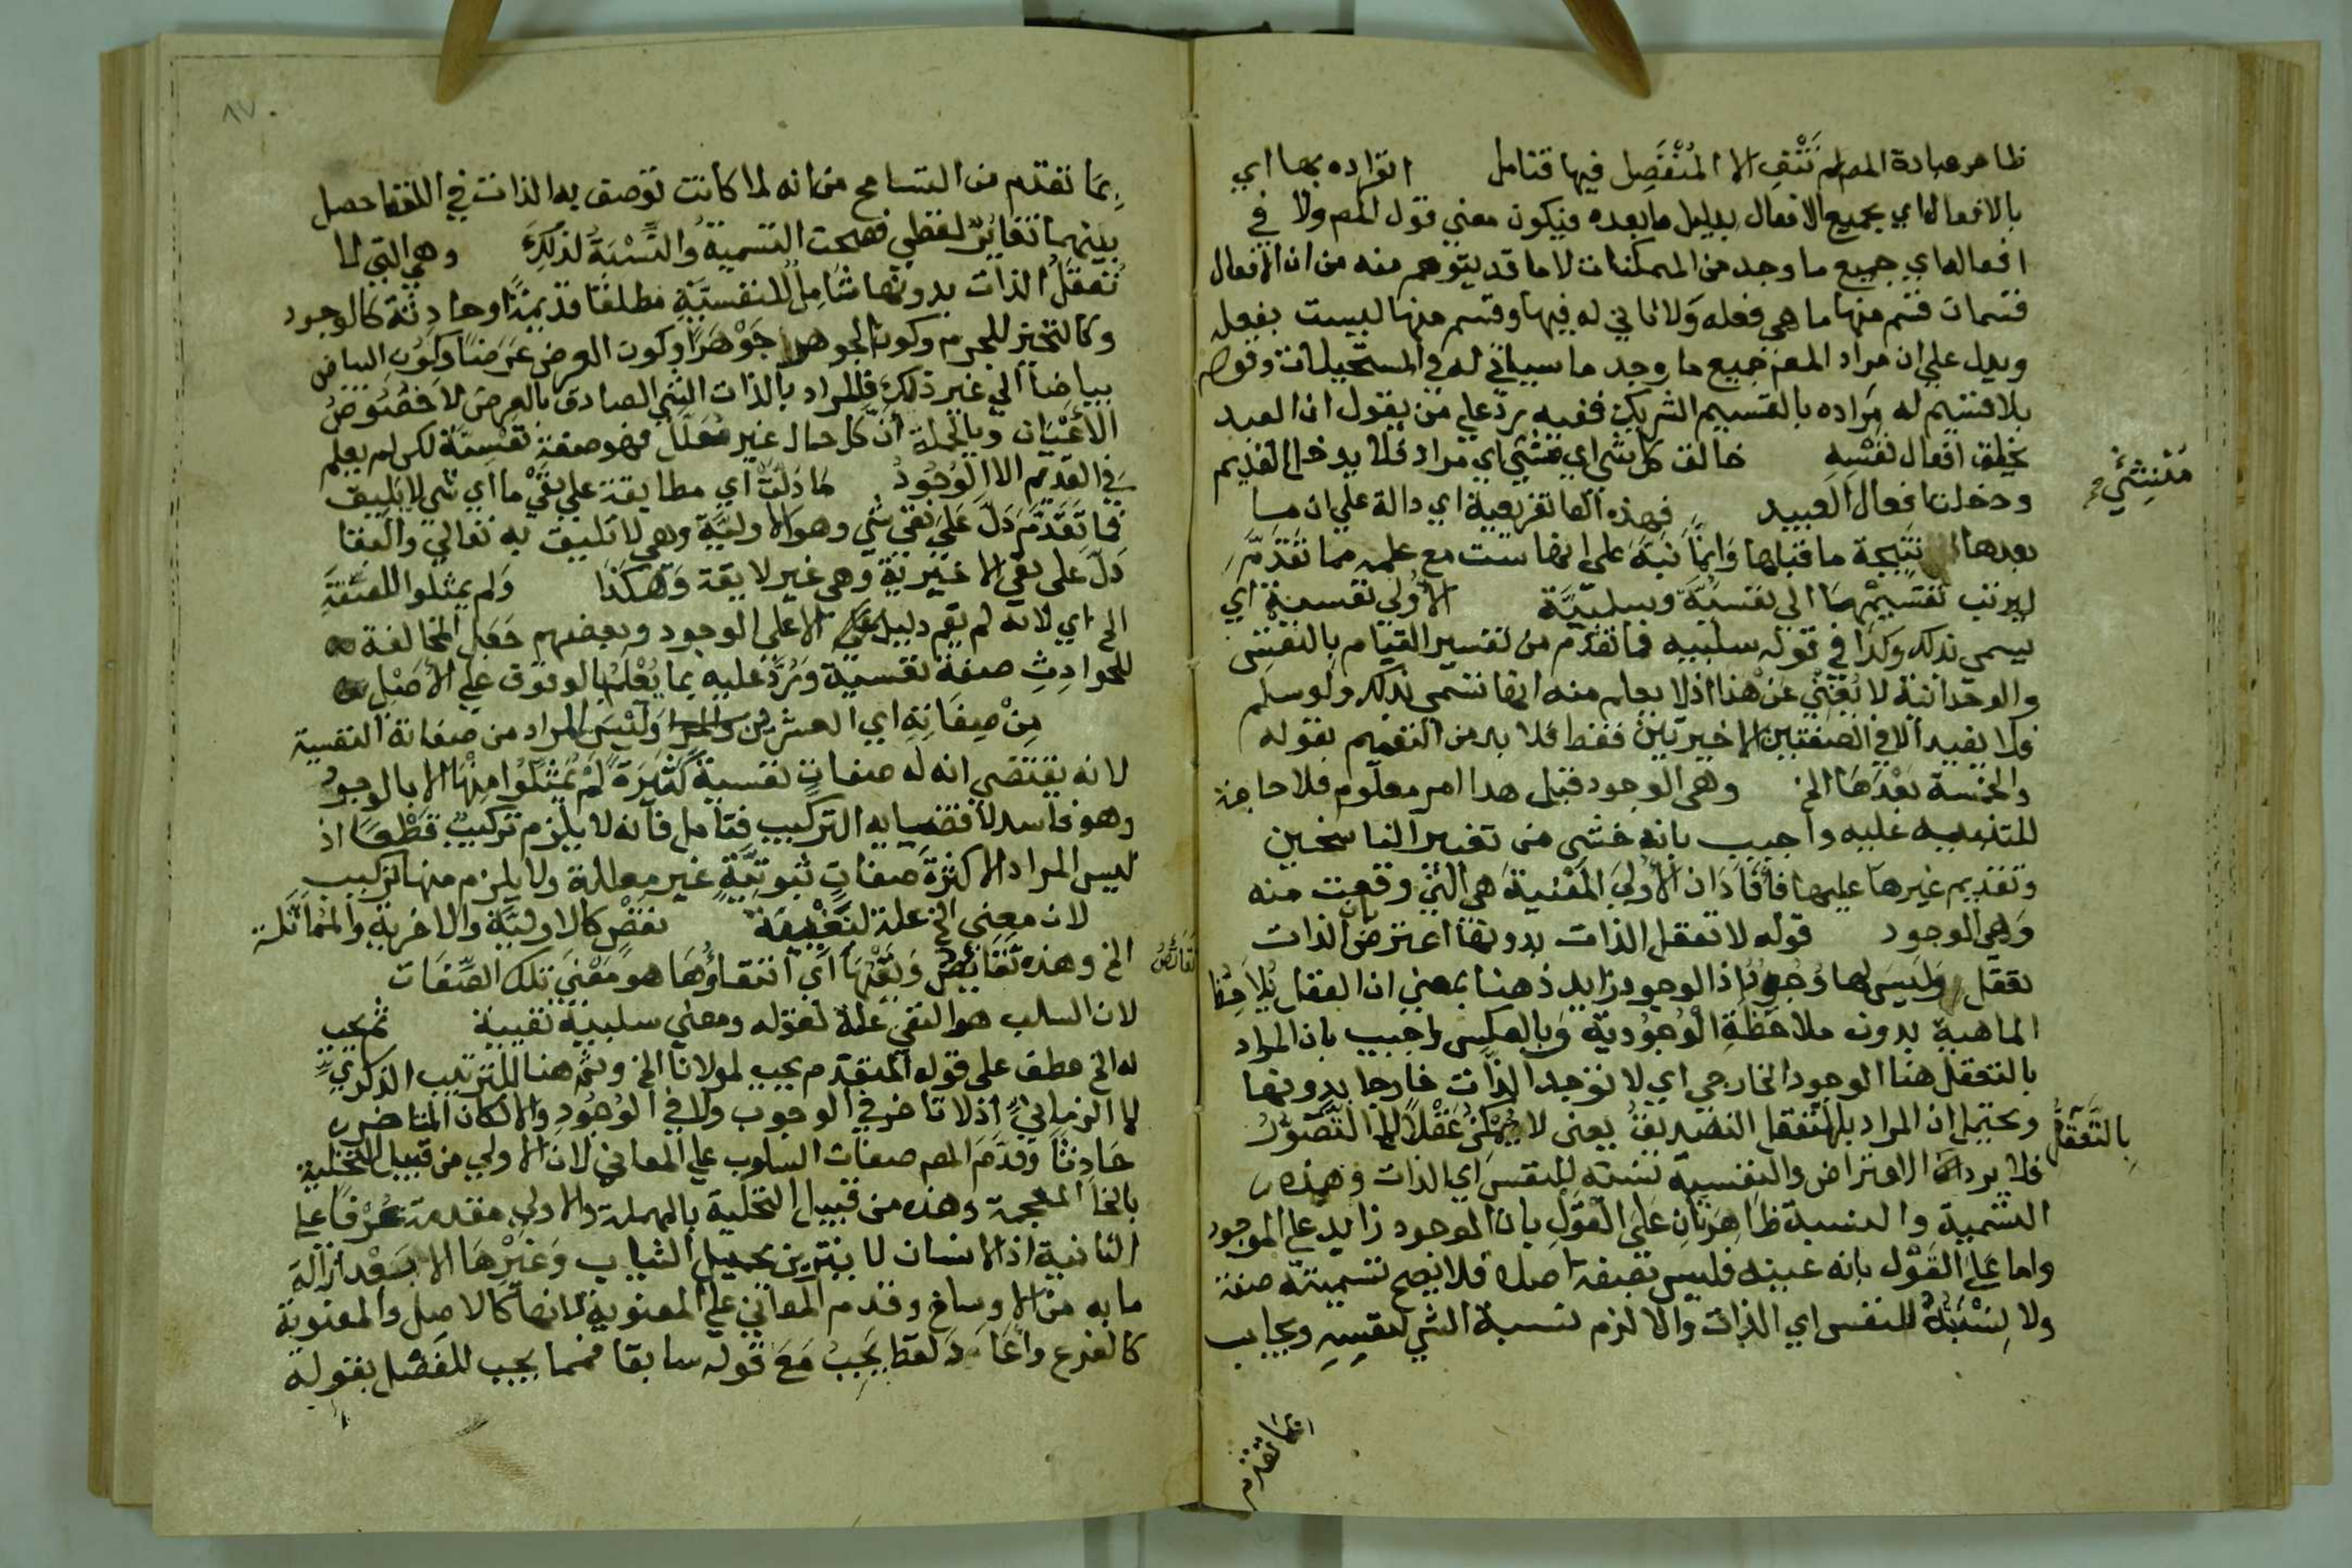 ظاهر عبارة المص لم تنتف الا المُنْفَصِل فيها فتامل انفراده بها اي
بالافعال اي بجميع الافعال بدليل ما بعده فيكون معني قول المص ولا في
افعاله اي جميع ما وجد من الممكنات لا ما قد يتوهم منه من ان الافعال
قسمان قسم منها ما هي فعله ولا ثاني له فيها وقسم منها ليست بفعله
ويدل علي ان مراد المص جميع ما وجد ما سياتي له في المستحيلات وقوله
بلا قسيم له مراده بالقسيم الشريك ففيه رد علي من يقول ان العبد
يخلق افعال نفسه خالق كل شي اي مشي اي مراد فلا يدخل القديم
مُنْشِئ صح
ودخلت افعال العبيد فهذه الفا تفريعية اي دالة علي ان ما
بعدها نتيجة ما قبلها وانما نبه علي انها ست مع علمه مما تقدم
ليرتب تقسيمها الي نفسية وسلبية الاولي نفسية اي
يسمي بذلك وكذا في قوله سلبيه فما تقدم من تفسير القيام بالنفس
والوحدانية لا يغني عن هذا اذ لا يعلم منه انها تسمي بذلك ولو سلم
فلا يفيد الا في الصفتين الاخيرتين فقط فلا بد من التعميم بقوله
والخمسة بعدها الخ وهي الوجود قبل هذا امر معلوم فلا حاجة
للتنبيه عليه واجيب بانه خشي من تغيير الناسخين
وتقديم غيرها عليها فافاد ان الاولي المعنية هي التي وقعت منه
وهي الوجود قوله لا تعقل الذات بدونها اعترض بان الذات
تعقل وليس لها وجود اذ الوجود زايد ذهنا بمعني ان العقل يلاحظ
الماهية بدون ملاحظة الوجودية وبالعكس واجيب بان المراد
بالتعقل هنا الوجود الخارجي اي لا توجد الذات خارجا بدونها
ويحتمل ان المراد بالتعقل التصديق يعني لا يمكن عقلا التصور
بِالتَّعَقُّلِ
فلا يرد الاعتراض والنفسية نسبة للنفس اي الذات وهذه
التسمية والنسبة ظاهرتان علي القول بان الوجود زايد علي الموجود
واما علي القول بانه عينه فليس بصفة اصلا فلا يصح تسميته صفة
ولا نسبته للنفس اي الذات والا لزم نسبة الشي لنفسه ويجاب
بما تقدم
٨٧
بما تقدم من التسامح من انه لما كانت توصف به الذات في اللفظ حصل
بينهما تغاير لفظي فصحت التسمية والنسبة لذلك وهي التي لا
تعقل الذات بدونها شامل للنفسية مطلقا قديمة او حادثة كالوجود
وكالتحيز للجرم وكون الجوهر جوهرا وكون العرض عرضا وكون البياض
بياضا الي غير ذلك فالمراد بالذات الشي الصادق بالعرض لا خصوص
الاعيان وبالجملة ان كل حال غير معلل فهو صفة نفسية لكن لم يعلم
في القديم الا الوجود ما دلت اي مطابقة علي نفي ما اي شي لا يليق
فما تقدم دل علي نفي شي وهو الاولية وهي لا تليق به تعالي والبقا
دل علي نفي الاخرية وهي غير لايقة وهكذا ولم يمثلوا للصفة
الخ اي لانه لم يقم دليل علي الا علي الوجود وبعضهم جعل المخالفة
للحوادث صفة نفسية ورد عليه بما يعلم بالوقوف علي الاصل
من صفاته اي العشرين وليس المراد من صفاته النفسية
لانه يقتضي انه له صفات نفسية كثيرة لم يمثلوا منها الا بالوجود
وهو فاسد لاقتضايه التركيب فتامل فانه لا يلزم تركيب قطعا اذ
ليس المراد الا كثرة صفات ثبوتية غير معللة ولا يلزم منها تركيب
لان معني الخ علة لتعريفه نقص كالاولية والاخرية والمماثلة
الخ وهذه نقايص ونفيها اي انتفاؤها هو معني تلك الصفات
نقائص
لان السلب هو النفي علة لقوله ومعني سلبية نفيية ثم يجب
له الخ عطف علي قوله المتقدم يجب لمولانا الخ وثم هنا للترتيب الذكري
لا الزماني اذ لا تاخر في الوجوب ولا في الوجود والا لكان المتاخر
حادثا وقدم المص صفات السلوب علي المعاني لان الاولي من قبيل التخلية
بالخا المعجمة وهذه من قبيل التحلية بالمهملة والاولي مقدمة عرفا علي
الثانية اذ الانسان لا يتزين بجميل الثياب وغيرها الا بعد ازالة
ما به من الاوساخ وقدم المعاني علي المعنوية لانها كالاصل والمعنوية
كالفرع واعاد لفظ يجب مع قوله سابقا فمما يجب للفصل بقوله